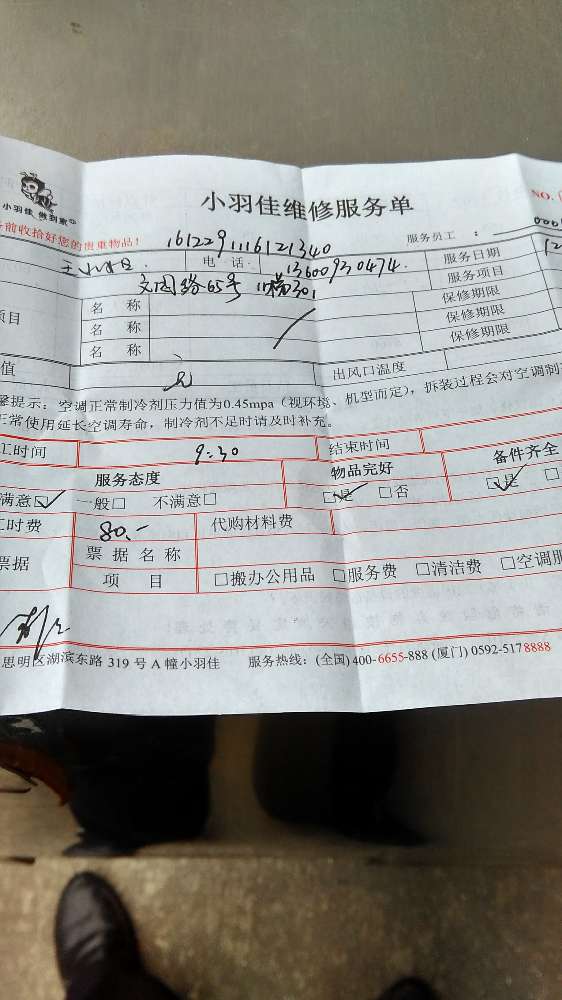 小羽佳维修服务单
小羽佳 做到家
NO.
前收拾好您的贵重物品!
1612291116121340
服务员工 :
000
王小姐
电 话
13600930474
服务日期
12
文园路65号 1梯301
服务项目
项目
名 称
保修期限
名 称
保修期限
名 称
保修期限
值
出风口温度
馨提示：空调正常制冷剂压力值为0.45mpa（视环境、机型而定），拆装过程会对空调制
正常使用延长空调寿命，制冷剂不足时请及时补充。
工时间
9:30
结束时间
服务态度
物品完好
备件齐全
满意☑ 一般□ 不满意□
☑是 □否
☑是 □
工时费
80.-
代购材料费
票据
票 据 名 称
项 目
□搬办公用品 □服务费 □清洁费 □空调服
思明区湖滨东路 319 号 A 幢小羽佳 服务热线：(全国) 400-6655-888 (厦门) 0592-5178888